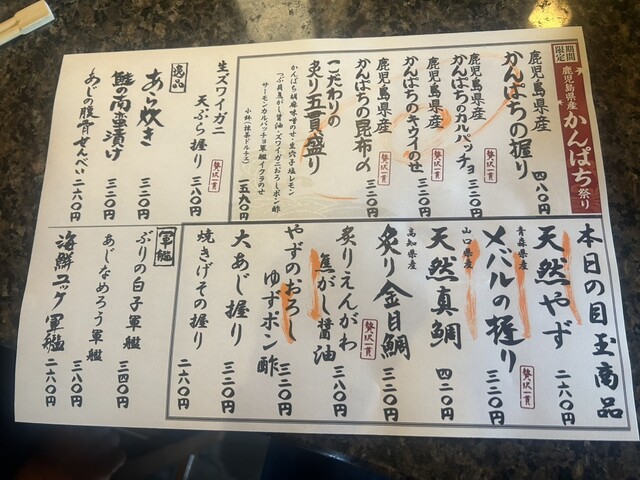 期間限定
鹿児島県産
かんぱち祭り
鹿児島県産
かんぱちの握り
四八〇円
贅沢一貫
鹿児島県産
かんぱちのカルパッチョ
三二〇円
鹿児島県産
かんぱちのキウイのせ
三二〇円
贅沢一貫
鹿児島県産
かんぱちの昆布〆
三二〇円
こだわりの
炙り五貫盛り
かんぱち胡麻味噌のせ・生穴子塩レモン
つぶ貝焦がし醤油・ズワイガニおろしポン酢
サーモンカルパッチョ軍艦イクラのせ
一五九〇円
生ズワイガニ
天ぷら握り
三八〇円
贅沢一貫
逸品
あら炊き
三二〇円
鮭の南蛮漬け
三二〇円
あじの腹骨せんべい
二六〇円
本日の目玉商品
天然やず
二六〇円
青森県産
メバルの握り
三二〇円
贅沢一貫
山口県産
天然真鯛
四二〇円
高知県産
炙り金目鯛
三二〇円
贅沢一貫
炙りえんがわ
焦がし醤油
三八〇円
やずのおろし
ゆずポン酢
三二〇円
大あじ握り
三二〇円
焼きげその握り
二六〇円
軍艦
ぶりの白子軍艦
三四〇円
あじなめろう軍艦
三八〇円
海鮮ユッケ軍艦
二六〇円